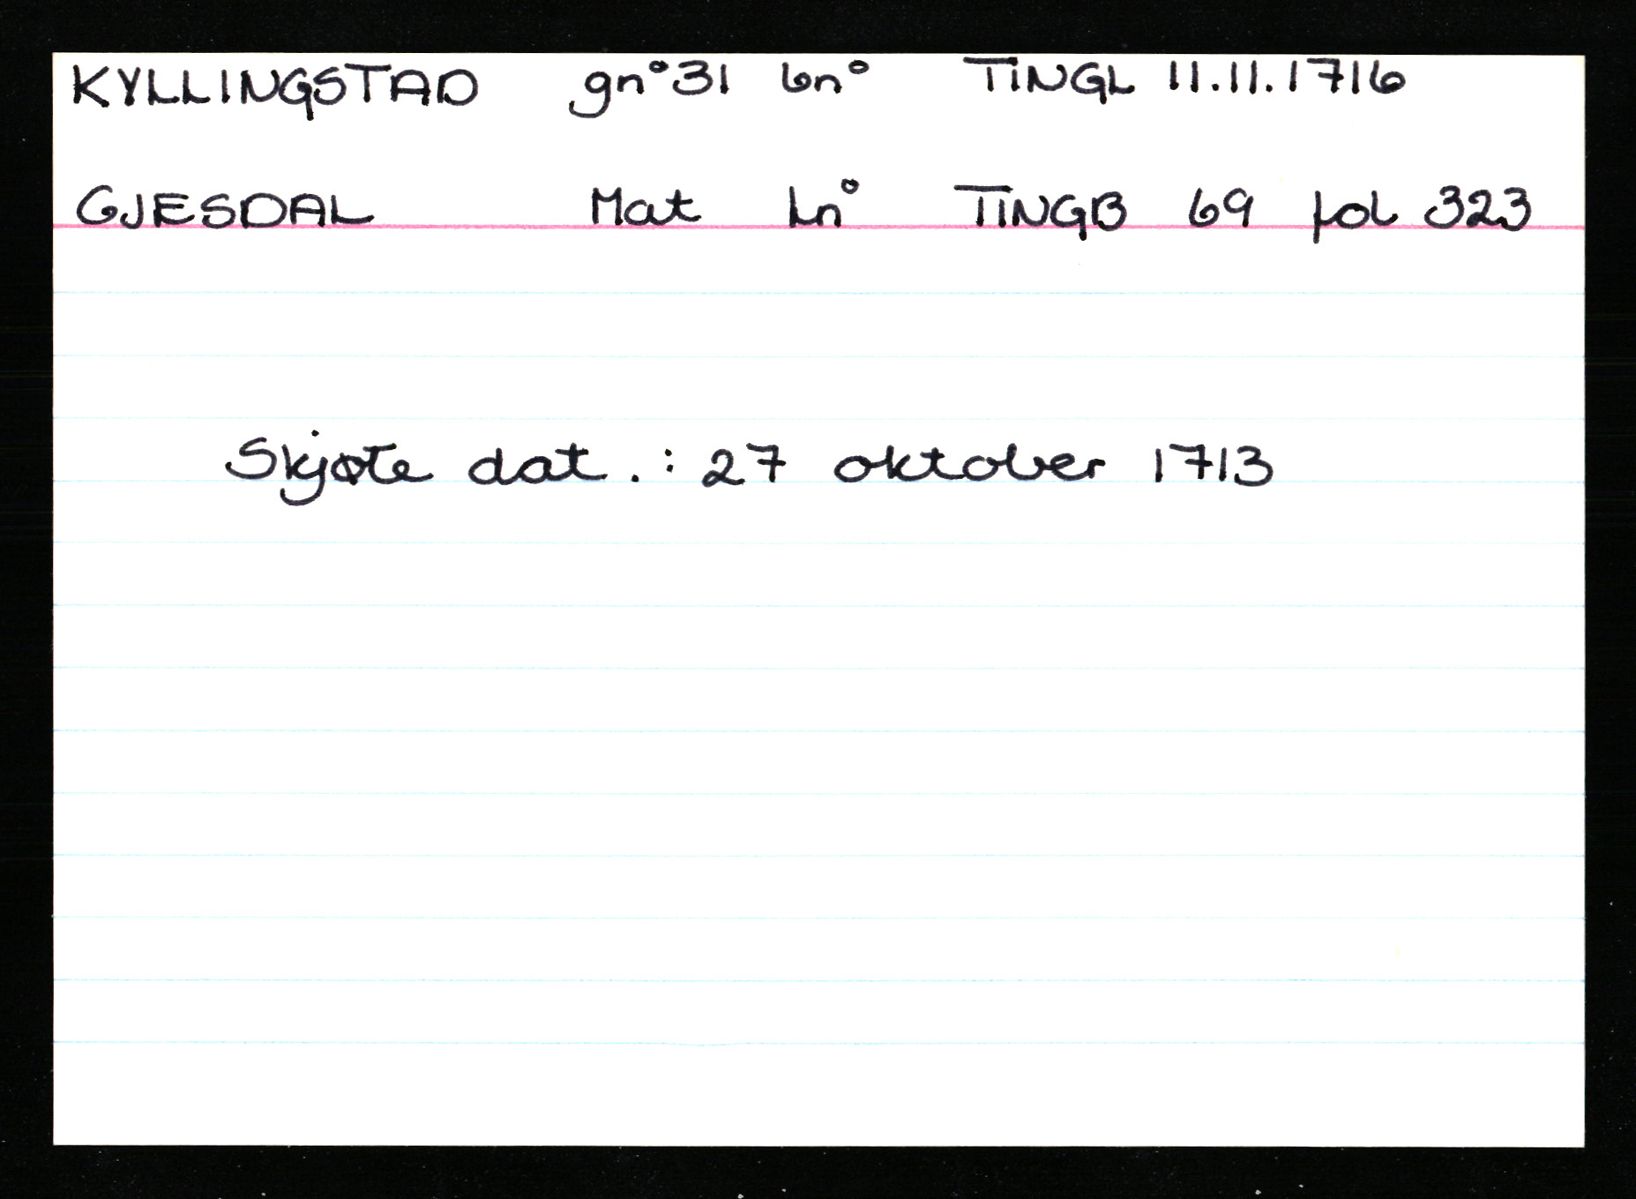 KYLLINGSTAD gn°31 bn° TINGL 11.11.1716
GJESDAL Mat Ln° TINGB 69 fol 323
Skjøte dat.: 27 oktober 1713